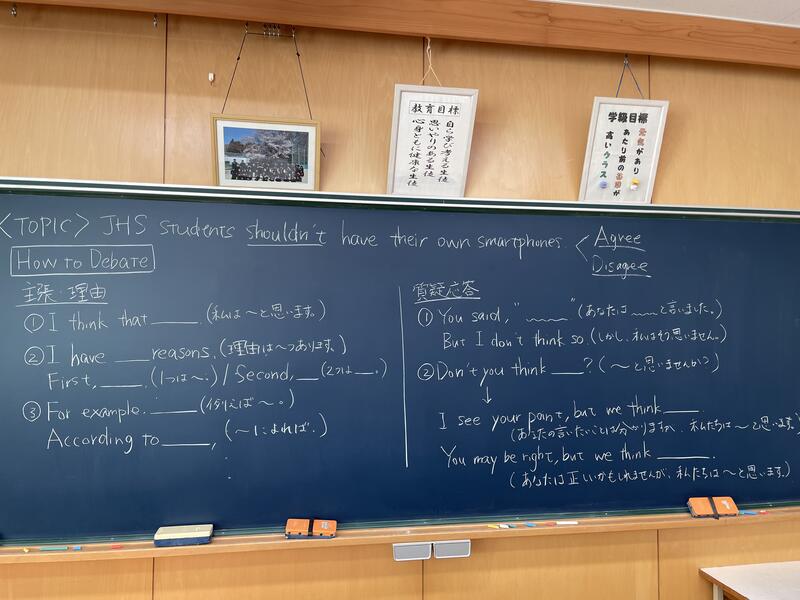 教育目標
自ら学び考える生徒
思いやりのある生徒
心身ともに健康な生徒
学級目標
元気があり
あたり前の基準が
高いクラス
<TOPIC> JHS students shouldn't have their own smartphones. < Agree
Disagree
How to Debate
主張・理由
① I think that ____. (私は〜と思います。)
② I have ____ reasons. (理由は〜つあります。)
First, ____. (1つは〜。) / Second, ___ (2つは__。)
③ For example. ____ (例えば〜。)
According to ____, (〜によれば.)
質疑応答
① You said, "〰〰" (あなたは〰〰と言いました。)
But I don't think so. (しかし、私はそう思いません。)
② Don't you think ____? (〜と思いませんか?)
↓
I see your point, but we think ____.
(あなたの言いたいことは分かりますが、私たちは〜と思います。)
You may be right, but we think ____.
(あなたは正しいかもしれませんが、私たちは〜と思います。)